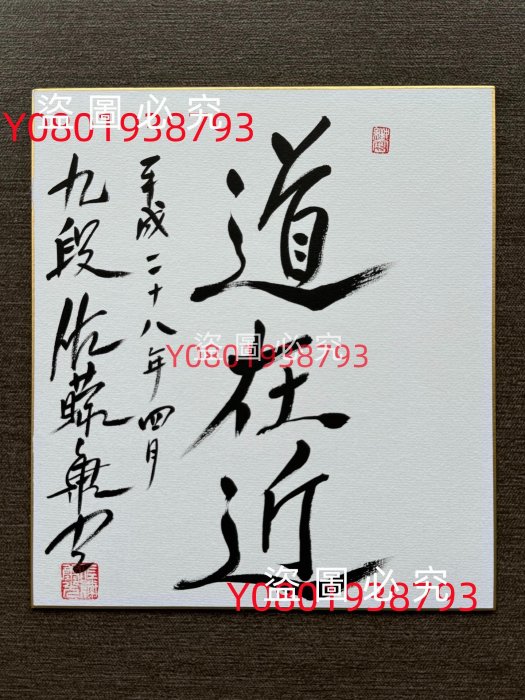 道在近
平成二十八年四月
九段 佐藤康光
盗圖必究
Y0801938793
盗圖必究
Y0801938793
盗圖必究
Y0801938793